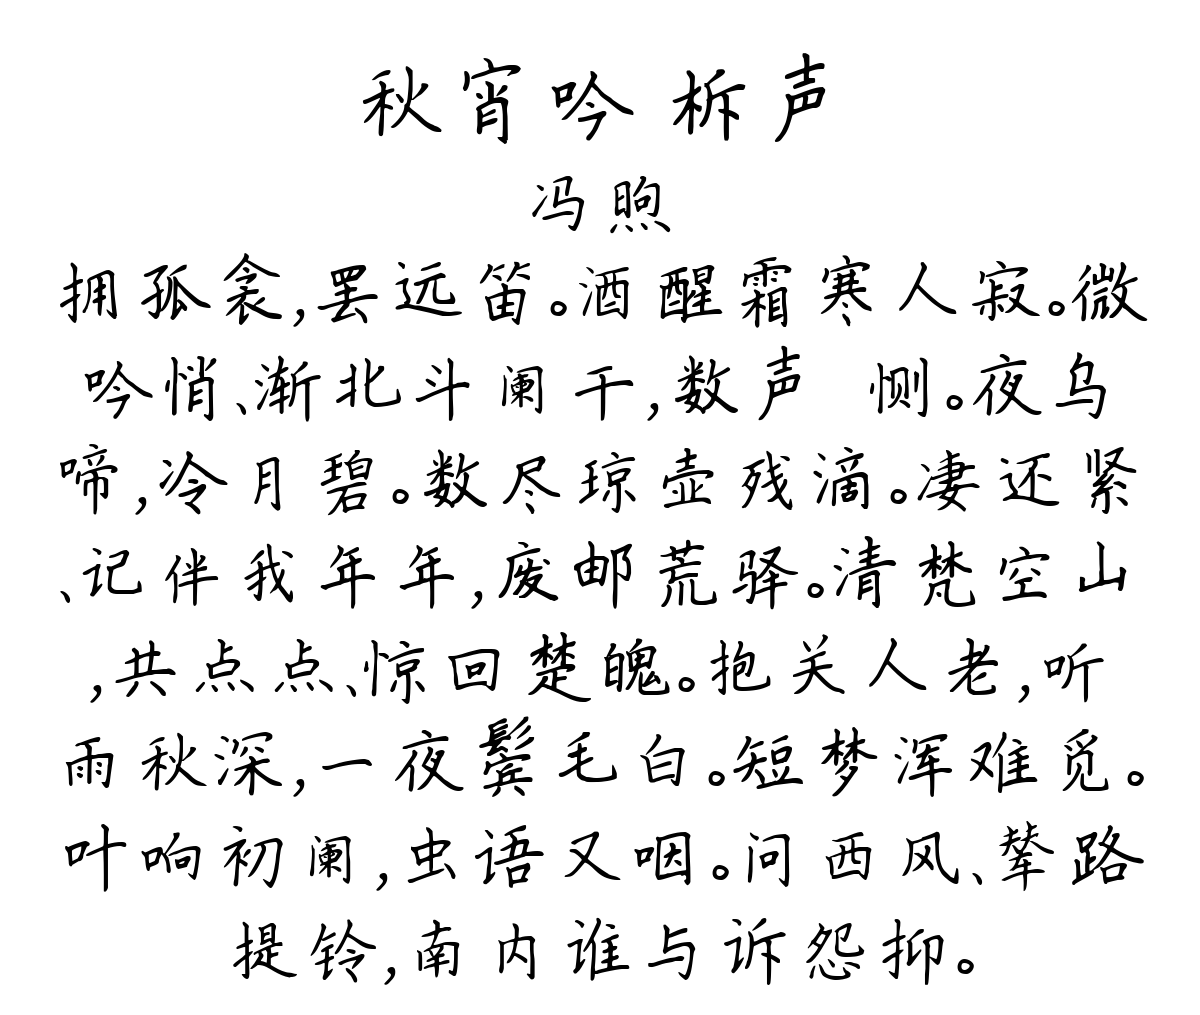 秋宵吟 柝声
冯煦
拥孤衾,罢远笛。酒醒霜寒人寂。微
吟悄、渐北斗阑干,数声 恻。夜乌
啼,冷月碧。数尽琼壶残滴。凄还紧
、记伴我年年,废邮荒驿。清梵空山
,共点点、惊回楚魄。抱关人老,听
雨秋深,一夜鬓毛白。短梦浑难觅。
叶响初阑,虫语又咽。问西风、辇路
提铃,南内谁与诉怨抑。